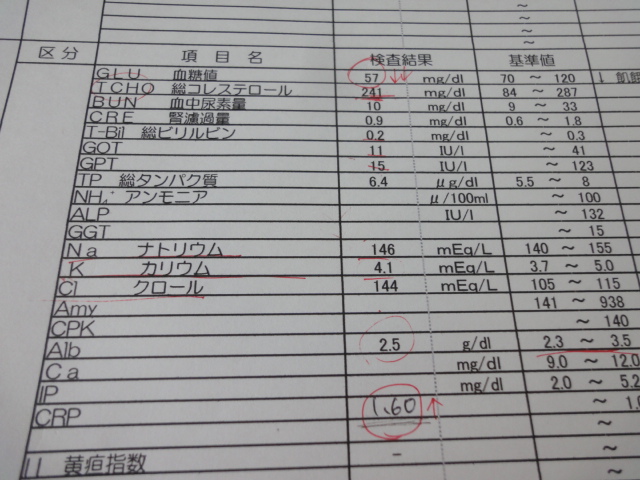 区分 項目名 検査結果 基準値
GLU 血糖値 57 ↓↓ mg/dl 70 ～ 120 ↓ 飢餓
TCHO 総コレステロール 241 mg/dl 84 ～ 287
BUN 血中尿素量 10 mg/dl 9 ～ 33
CRE 腎濾過量 0.9 mg/dl 0.6 ～ 1.8
T-Bil 総ビリルビン 0.2 mg/dl ～ 0.3
GOT 11 IU/l ～ 41
GPT 15 IU/l ～ 123
TP 総タンパク質 6.4 μg/dl 5.5 ～ 8
NH₄⁺ アンモニア μ/100ml ～ 100
ALP IU/l ～ 132
GGT ～ 15
Na ナトリウム 146 mEq/L 140 ～ 155
K カリウム 4.1 mEq/L 3.7 ～ 5.0
Cl クロール 144 mEq/L 105 ～ 115
Amy 141 ～ 938
CPK ～ 140
Alb 2.5 g/dl 2.3 ～ 3.5
Ca mg/dl 9.0 ～ 12.0
IP mg/dl 2.0 ～ 5.2
CRP 1.60 ↑ ～ 1.0
～
II 黄疸指数 － ～
～